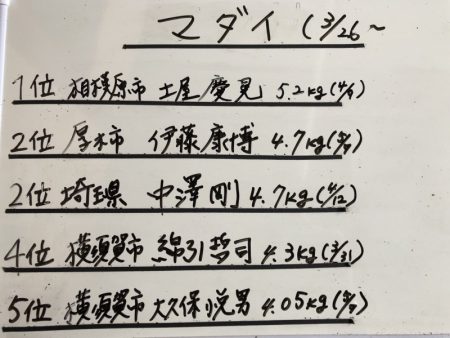 マダイ (3/26~
1位 相模原市 土屋慶見 5.2kg(4/9)
2位 厚木市 伊藤康博 4.7kg(
2位 埼玉県 中澤剛 4.7kg(4/12)
4位 横須賀市 綿引哲司 4.3kg(3/31)
5位 横須賀市 大久保悦男 4.05kg(